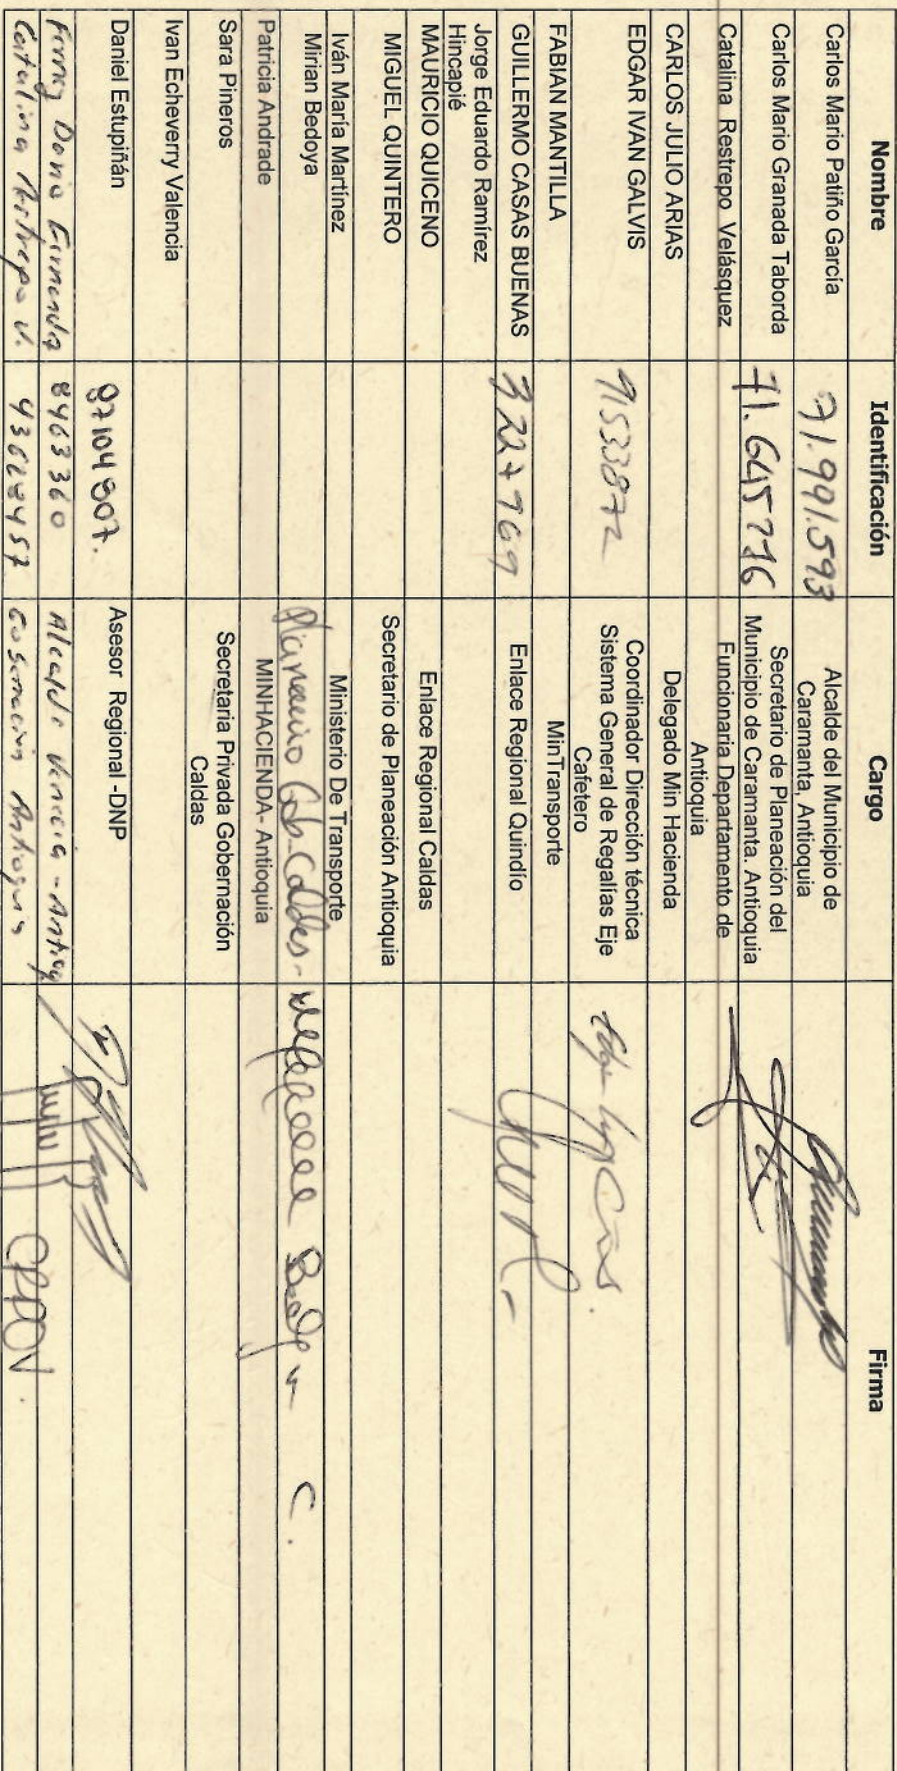 Nombre Identificación Cargo Firma
Carlos Mario Patiño García 71.991.593 Alcalde del Municipio de
Caramanta, Antioquia
Carlos Mario Granada Taborda 71.645776 Secretario de Planeación del
Municipio de Caramanta. Antioquia
Catalina Restrepo Velásquez Funcionaria Departamento de
Antioquia
CARLOS JULIO ARIAS Delegado Min Hacienda
EDGAR IVAN GALVIS 9533872 Coordinador Dirección técnica
Sistema General de Regalías Eje
Cafetero
FABIAN MANTILLA MinTransporte
GUILLERMO CASAS BUENAS 3227769 Enlace Regional Quindío
Jorge Eduardo Ramírez
Hincapié
MAURICIO QUICENO Enlace Regional Caldas
MIGUEL QUINTERO Secretario de Planeación Antioquia
Iván María Martínez Ministerio De Transporte
Mirian Bedoya Gob-Caldas-
Patricia Andrade MINHACIENDA- Antioquia
Sara Pineros Secretaria Privada Gobernación
Caldas
Ivan Echeverry Valencia
Daniel Estupiñán 87104807. Asesor Regional -DNP
8463360 Alcalde Venecia - Antioq
Catalina Restrepo V. Antioquia